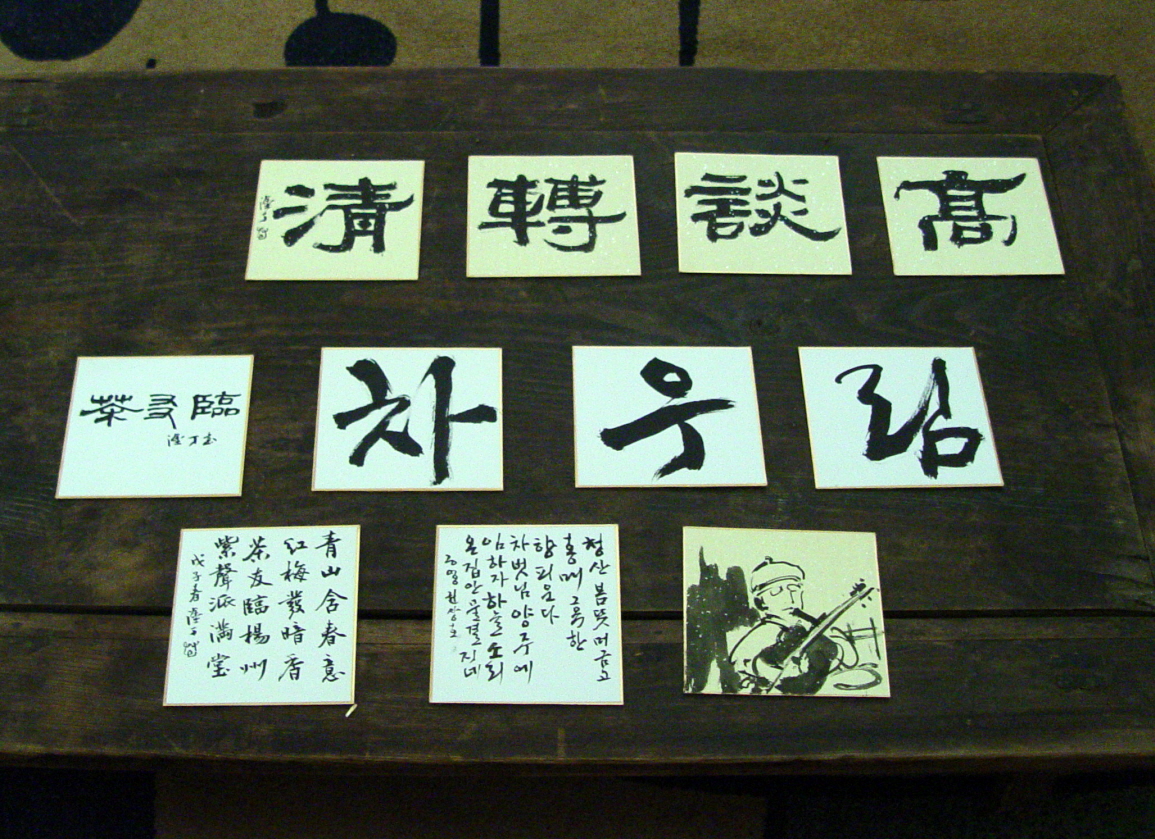 高談轉清
차우림
茶友臨
青山含春意
紅梅發暗香
茶友臨楊州
聲派滿堂
戊子春
청산 봄뜻 머금고
홍매 그윽한
향 피운다
차벗님 양주에
임하자 하늘 소리
온 집안 물결지네